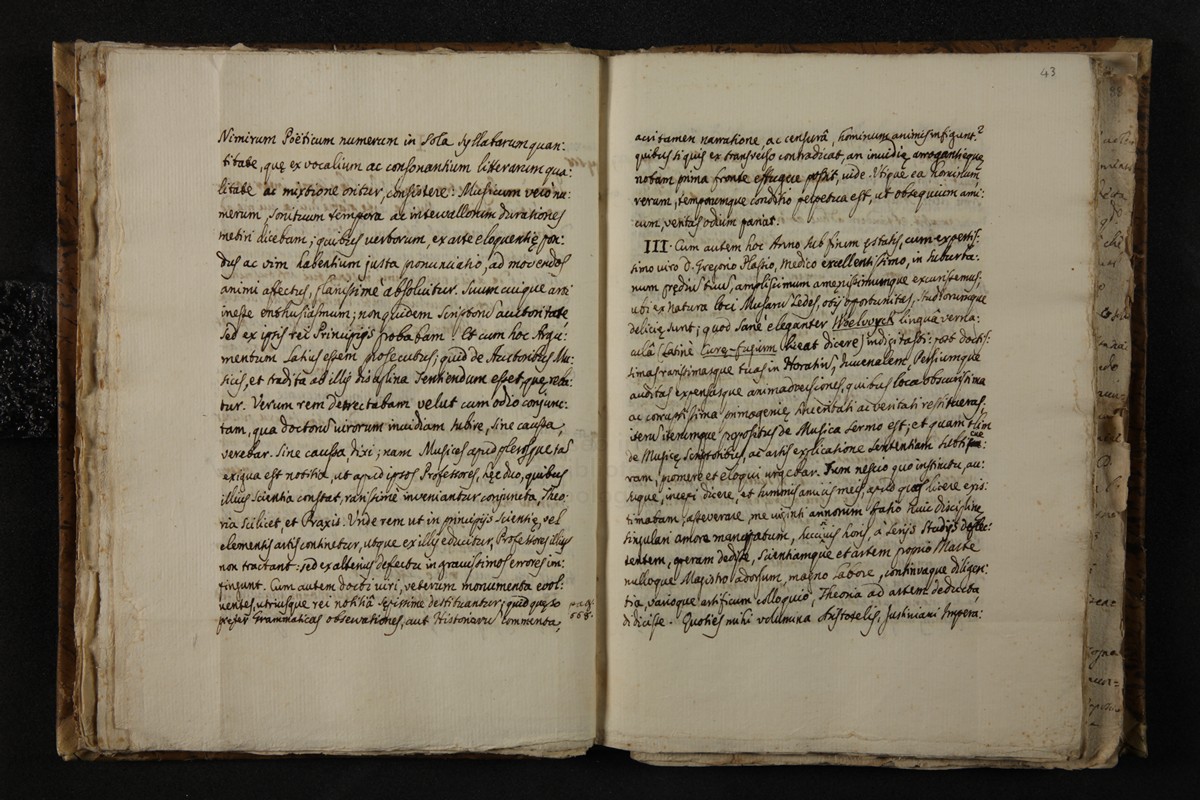 Nimirum Poëticum numerum in sola syllabarum quan:
titate, quę ex vocalium ac consonantium litterarum qua:
litate ac mixtione oritur, consistere: Musicum verò nu:
merum, sonituum tempora ac intervallorum durationes
metiri dicebam; quibus verborum, ex arte eloquentię pon:
dus ac vim habentium justa pronunciatio, ad movendos
animi affectus, planissimè absolvitur. Suum cuique arti
inesse enthusiasmum; non quidem scriptorũ auctoritate
sed ex ipsis rei Principijs probabam. Et cum hoc Argu:
mentum latius essem prosecutus; quid de Auctoribus Mu:
sicis, et tradita ab illis disciplina sentiendum esset, quę reba:
tur. Verum rem detrectabam velut cum odio conjunc:
tam, qua doctorũ virorum invidiam subire, sine caussa,
verebar. Sine caussa dixi; nam Musices apud plerosque tã
exigua est notitia, ut apud ipsos Professores, hęc duo, quibus
illius scientia constat, rarissimè inveniantur conjuncta, Theo:
ria scilicet, et Praxis. Unde rem ut in principijs scientię, vel
elementis artis continetur, utque ex illis educitur, Professores illius
non tractant: sed ex alterius defectu in gravissimos errores im:
pingunt. Cum autem docti viri, veterum monumenta evol:
ventes, utriusque rei notitiâ sępissime destituantur; quid quęso
pręter Grammaticas observationes, aut Historiarũ commenta,
pag.
668.
43
acri tamen narratione, ac censurâ, hominum animis infigunt?
quibus si quis ex transverso contradicat, an invidię arrogantięque
notam prima fronte effugere possit, vide. Utique ea hominum
rerum, temporumque conditio perpetua est, ut obsequium ami:
cum, veritas odium pariat.
III. Cum autem hoc Anno sub finem ęstatis, cum expertis:
simo viro D. Gregorio Plassio, Medico excellentissimo, in suburba:
num prędium tuum, amplissimum amęnissimumque excurrissemus;
ubi ex natura loci Musarũ sedes, otij opportunitas, studiorumque
delicię sunt; quod sanè eleganter Woelwyck linguâ verna:
culâ (Latinè Curę-fugium liceat dicere) indigitasti: post doctis:
simas rarissimasque tuas in Horatium, Juvenalem, Persiumque
auditas expensasque animadversiones, quibus loca obscurissima
ac corruptissima primogenię sinceritati ac veritati restitueras,
iterũ iterumque propositus de Musica sermo est; et quam olim
de Musicę scriptoribus, ac artis explicatione sententiam subticue
ram, promere et eloqui urgebar. Tum nescio quo instinctu, au:
susque, incepi dicere, et summis amicis meis, apud quos licere exis:
timabam; asseverare, me viginti annorum statio huic disciplinę
singulari amore mancipatum, succivis horis, a serijs studijs deflec:
tentem, operam dedisse, scientiamque et artem proprio Marte
nulloque Magistro adorsum, magno labore, continuaque diligen:
tia, varioque artificum colloquio, Theoria ad artem deducta,
didicisse. Quoties mihi volumina Aristotelis, Justiniani Impera: